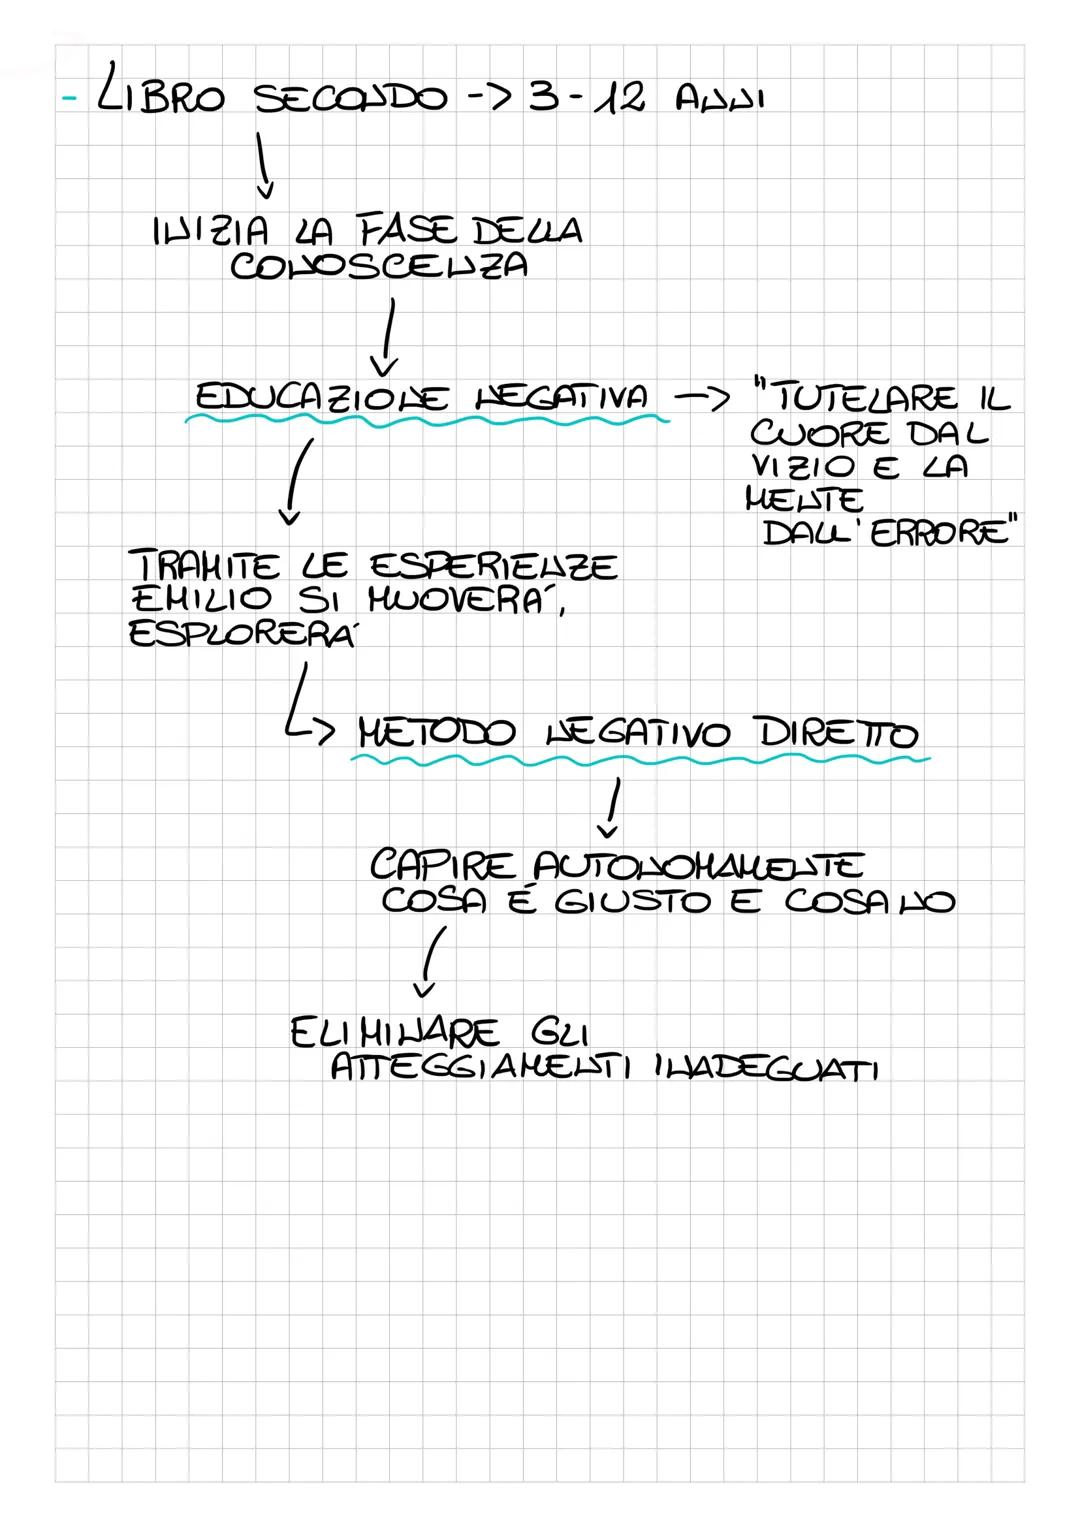 - LIBRO SECONDO -> 3-12 ANNI
INIZIA LA FASE DELLA
CONOSCENZA
EDUCAZIONE NEGATIVA -> "TUTELARE IL
CUORE DAL
VIZIO E LA
MENTE
DALL'ERRORE"
TRAMITE LE ESPERIENZE
EMILIO SI MUOVERA',
ESPLORERA'
METODO NEGATIVO DIRETTO
CAPIRE AUTONOMAMENTE
COSA É GIUSTO E COSA NO
ELIMINARE GLI
ATTEGGIAMENTI INADEGUATI